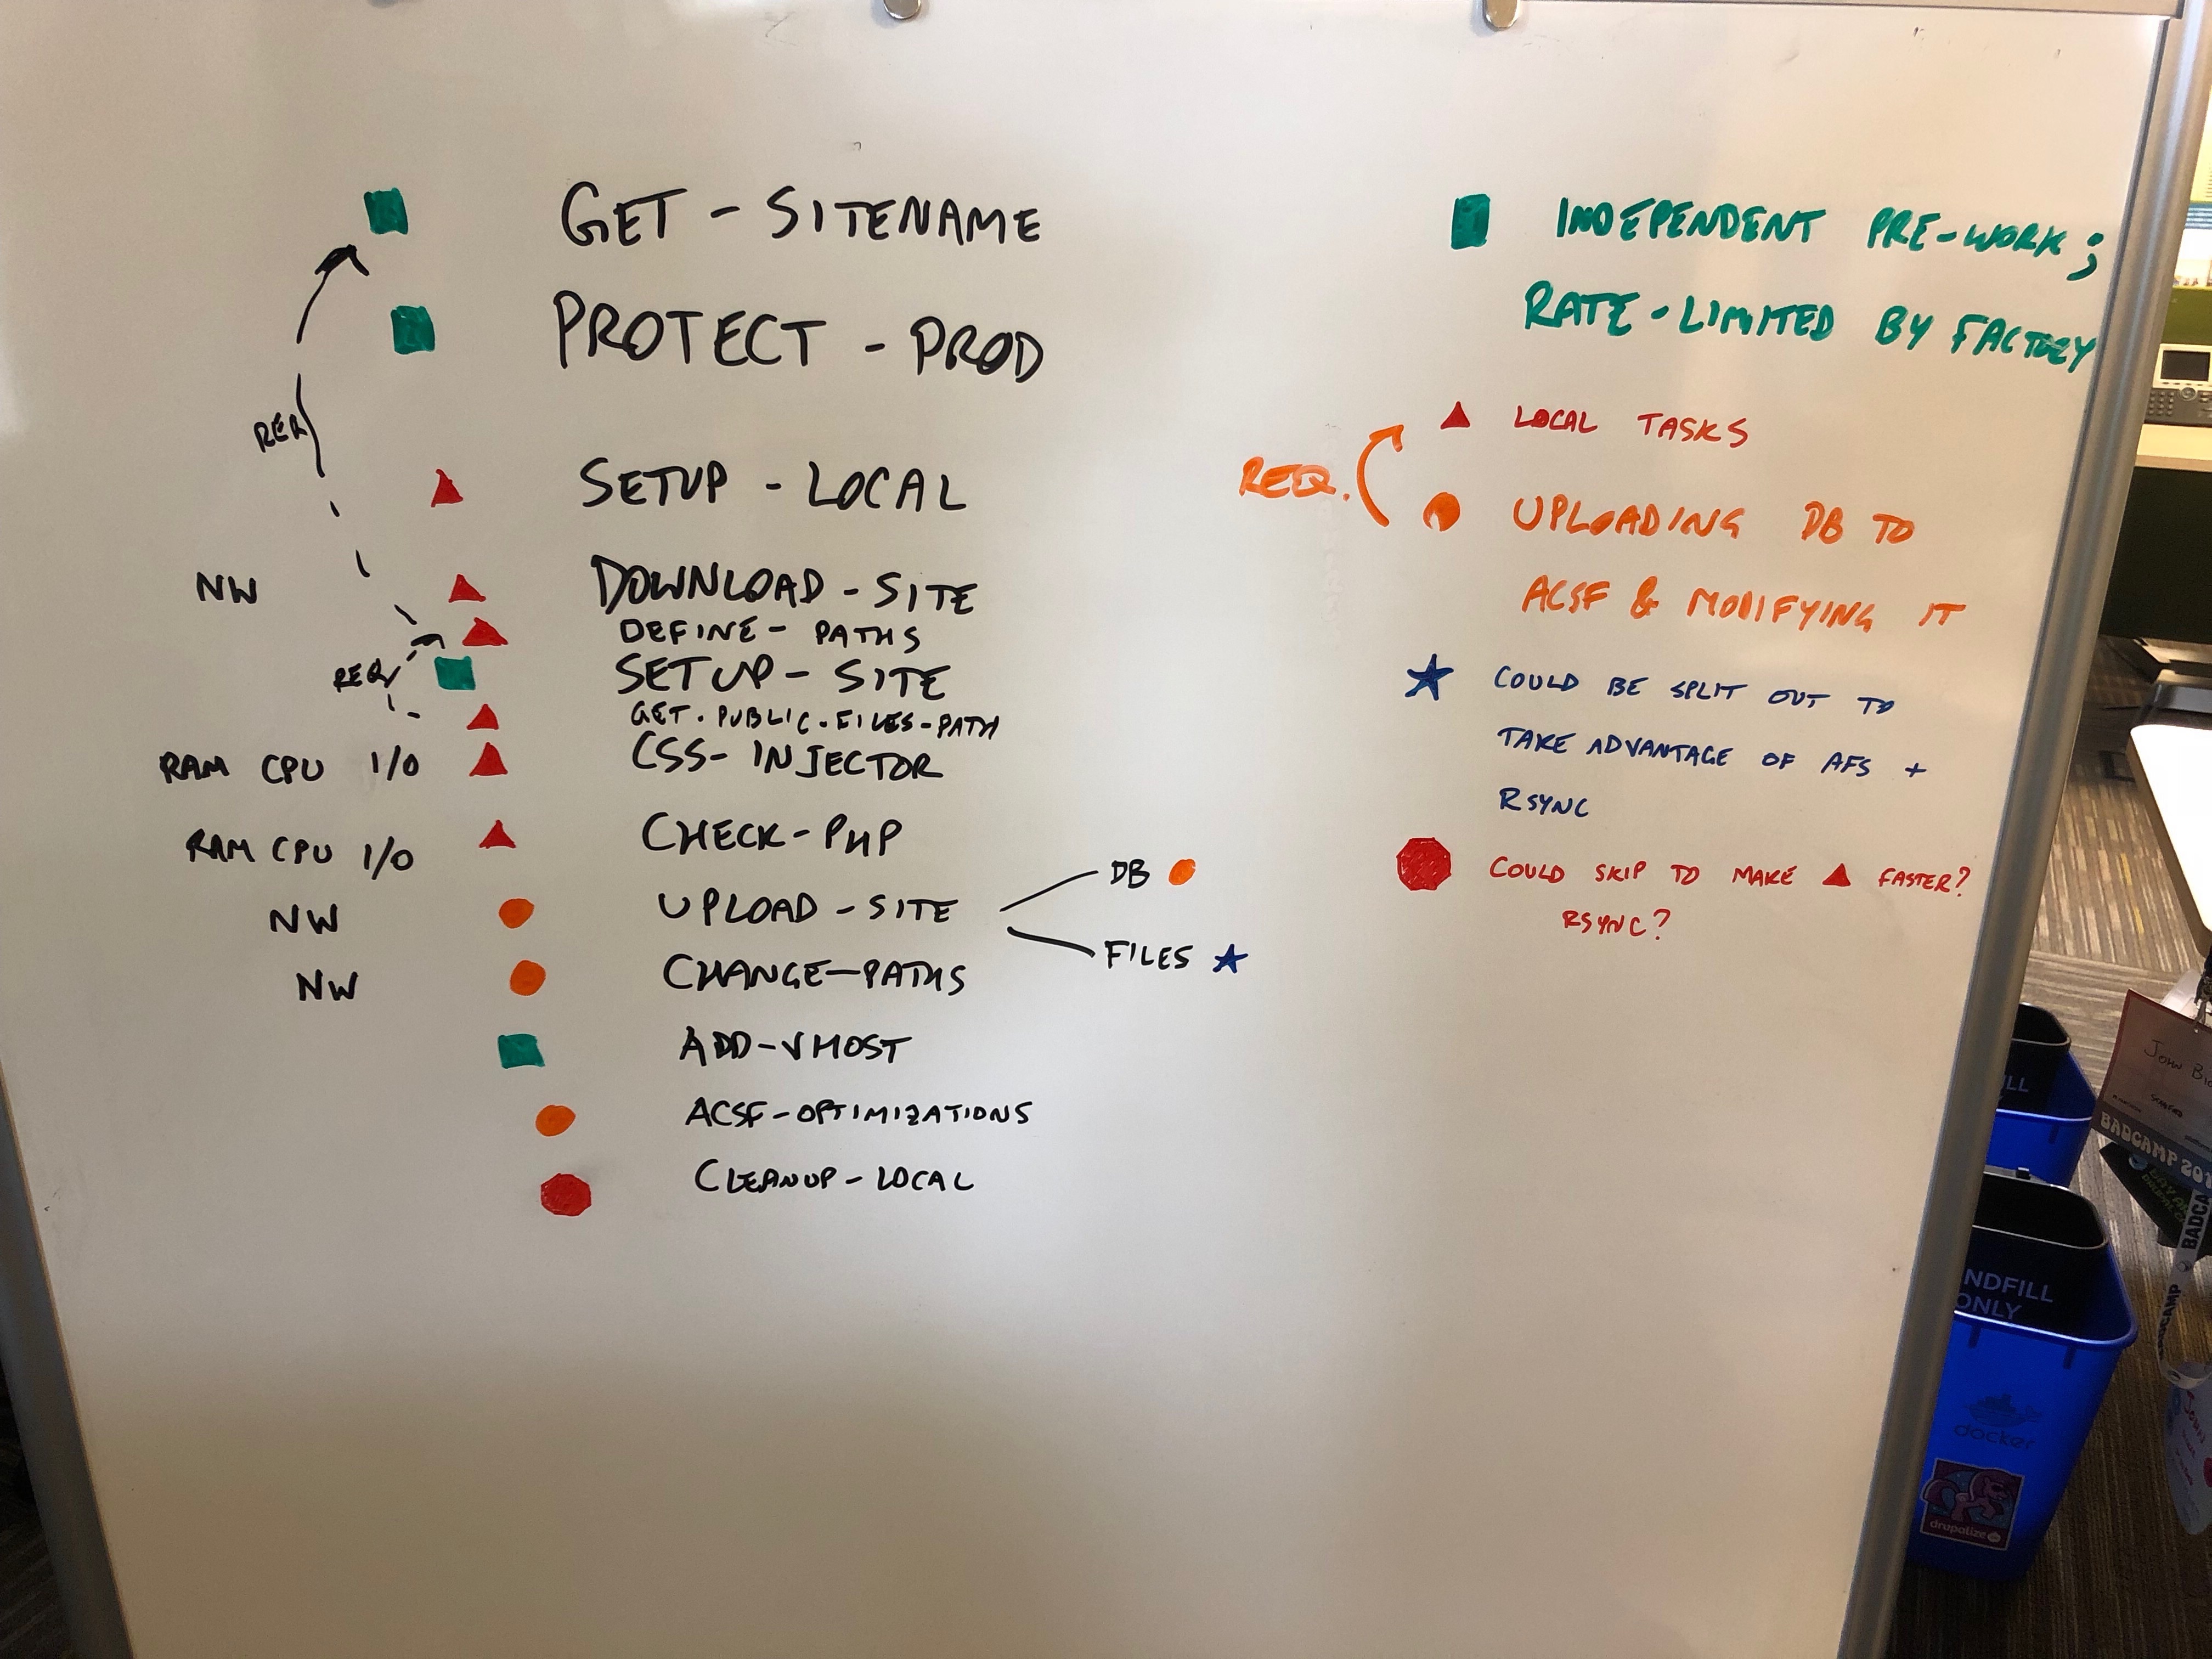 GET - SITENAME
PROTECT - PROD
REQ
SETUP - LOCAL
NW DOWNLOAD - SITE
DEFINE - PATHS
REQ SETUP - SITE
GET-PUBLIC-FILES-PATH
RAM CPU I/O CSS - INJECTOR
RAM CPU I/O CHECK - PHP
NW UPLOAD - SITE
DB
FILES
NW CHANGE-PATHS
ADD-VHOST
ACSF-OPTIMIZATIONS
CLEANUP - LOCAL
INDEPENDENT PRE-WORK;
RATE-LIMITED BY FACTORY
LOCAL TASKS
REQ.
UPLOADING DB TO
ACSF & MODIFYING IT
COULD BE SPLIT OUT TO
TAKE ADVANTAGE OF AFS +
RSYNC
COULD SKIP TO MAKE ▲ FASTER?
RSYNC?
JOHN
BADCAMP
BADCAMP
NDFILL
ONLY
docker
drupalize